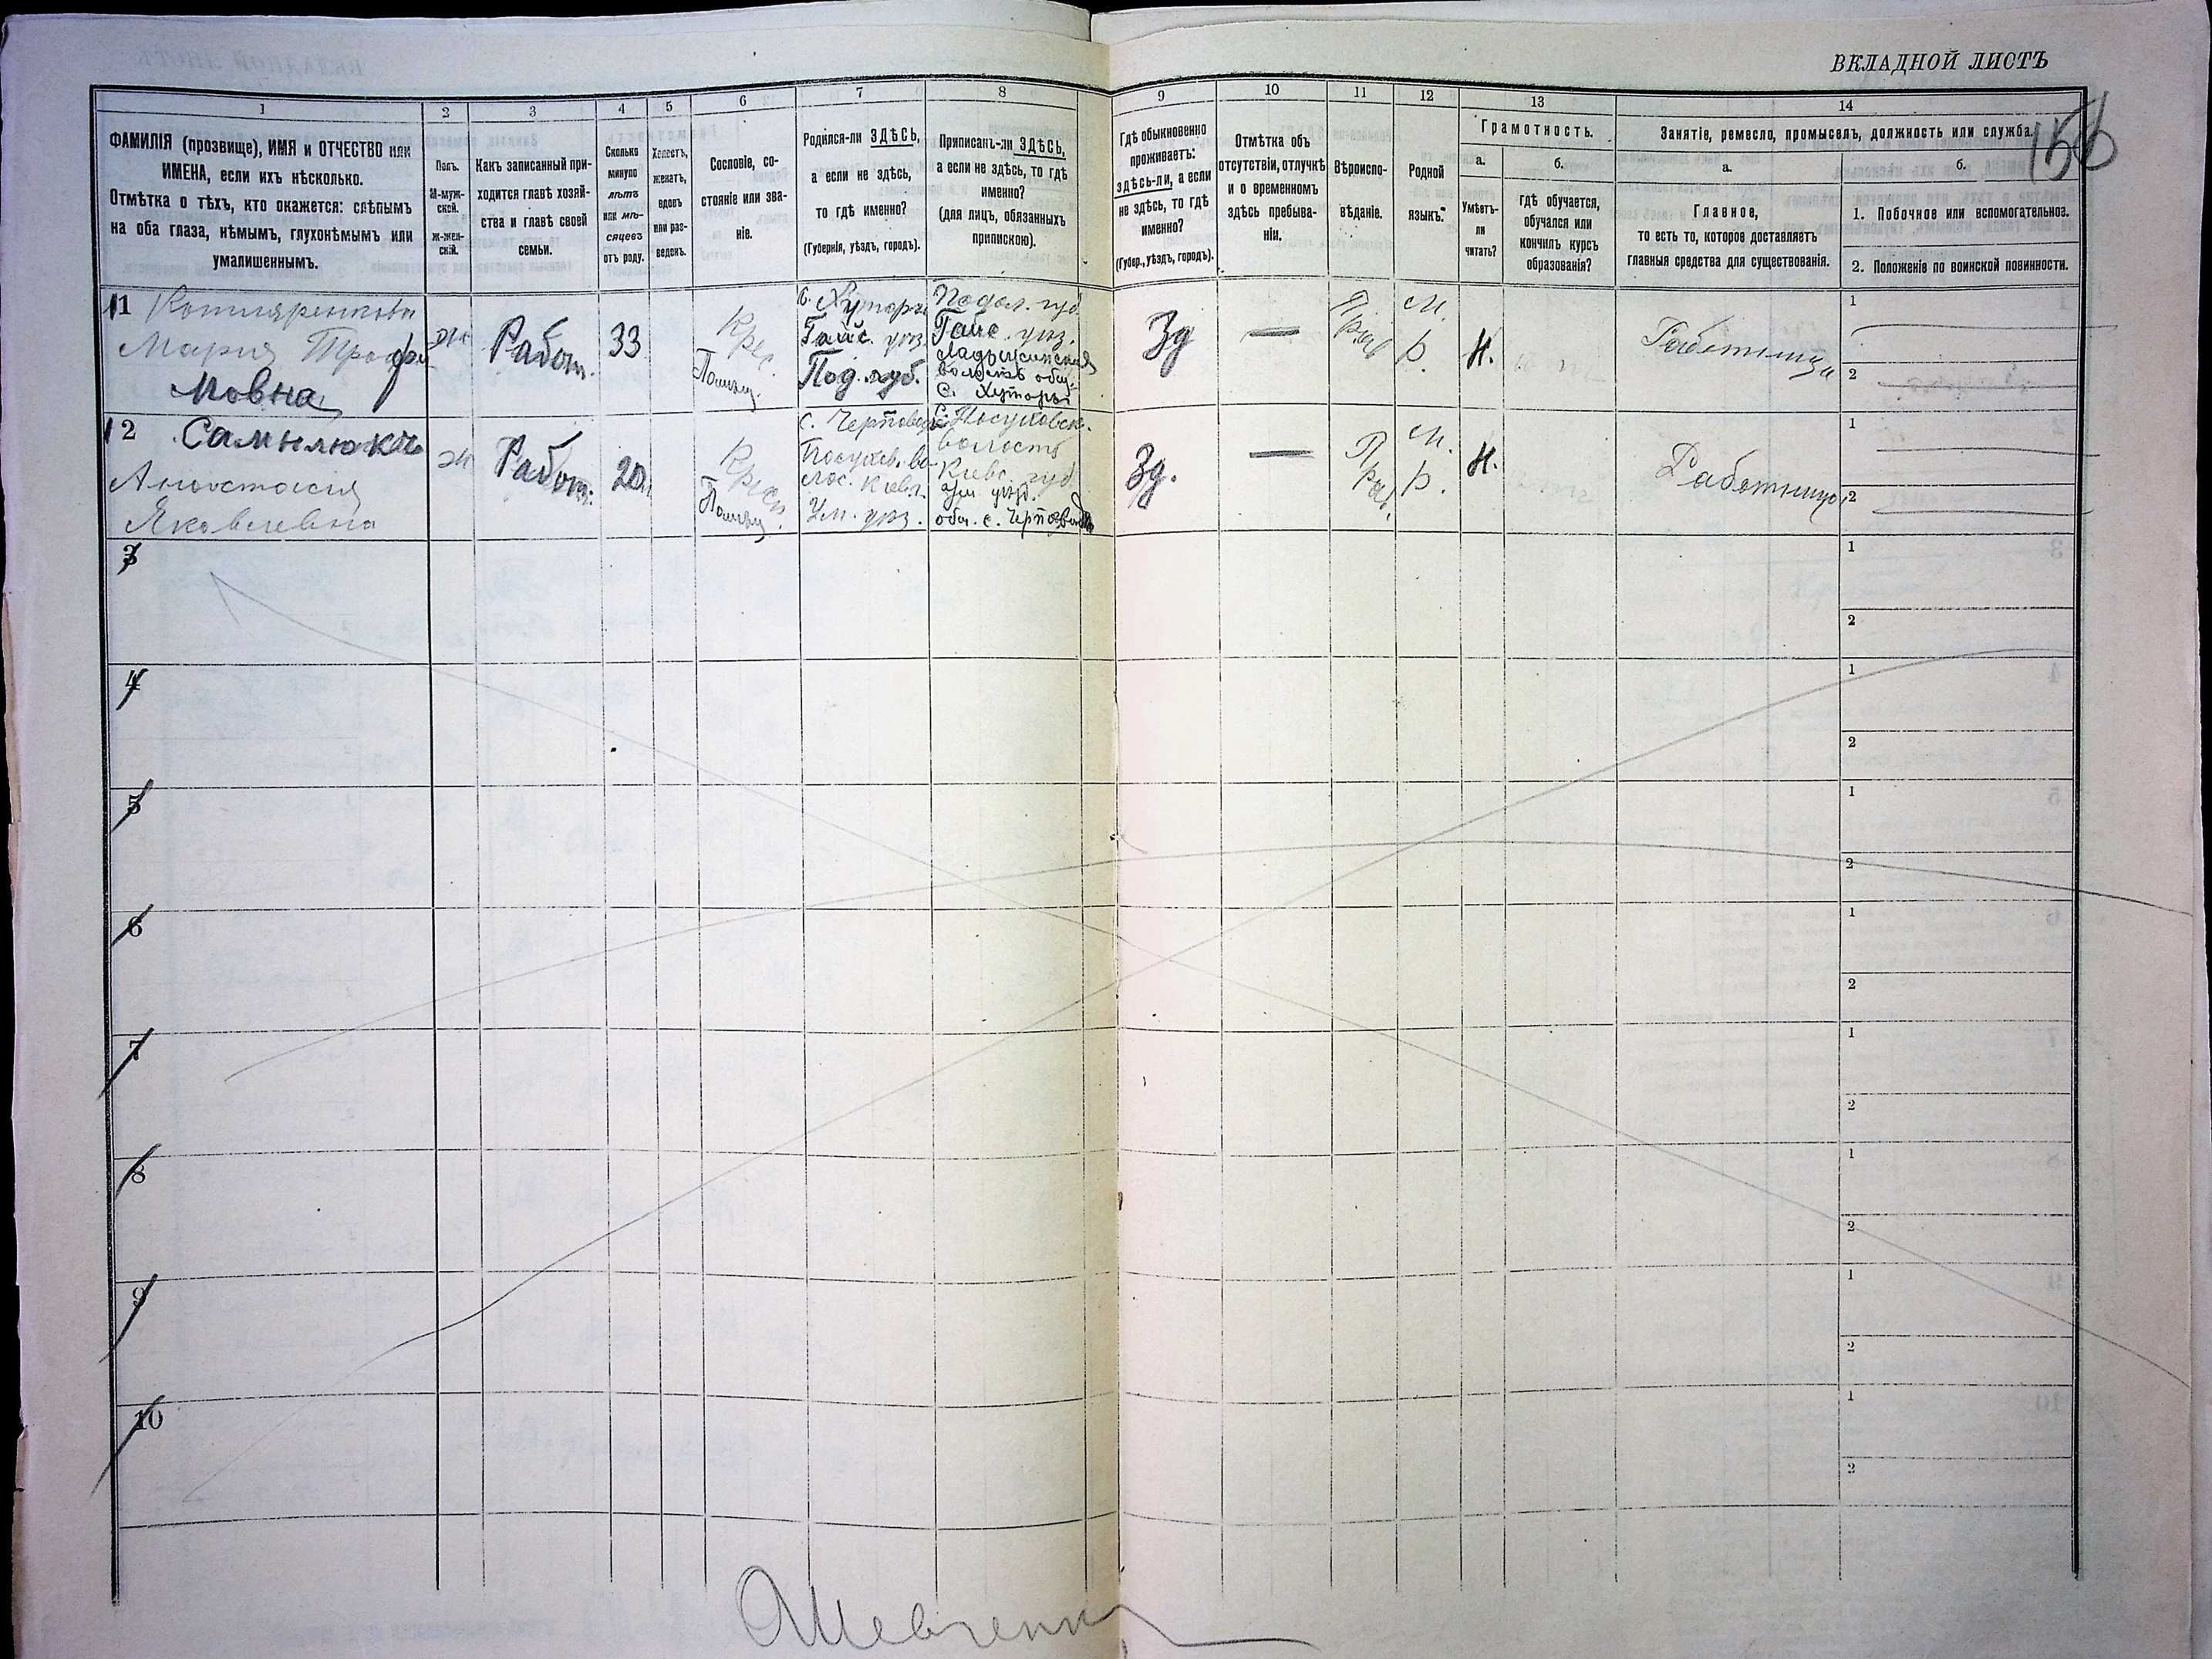 ВКЛАДНОЙ ЛИСТЪ
156
1
2
3
4
5
6
7
8
9
10
11
12
13
14
ФАМИЛІЯ (прозвище), ИМЯ и ОТЧЕСТВО или
ИМЕНА, если ихъ нѣсколько.
Отмѣтка о тѣхъ, кто окажется: слѣпымъ
на оба глаза, нѣмымъ, глухонѣмымъ или
умалишеннымъ.
Полъ.
М-муж-
ской.
Ж-жен-
скій.
Какъ записанный при-
ходится главѣ хозяй-
ства и главѣ своей
семьи.
Сколько
минуло
лѣтъ
или мѣ-
сяцевъ
отъ роду.
Холостъ,
женатъ,
вдовъ
или раз-
веденъ.
Сословіе, со-
стояніе или зва-
ніе.
Родился-ли ЗДѢСЬ,
а если не здѣсь,
то гдѣ именно?
(Губернія, уѣздъ, городъ).
Приписанъ-ли ЗДѢСЬ,
а если не здѣсь, то гдѣ
именно?
(для лицъ, обязанныхъ
припискою).
Гдѣ обыкновенно
проживаетъ:
здѣсь-ли, а если
не здѣсь, то гдѣ
именно?
(Губер., уѣздъ, городъ).
Отмѣтка объ
отсутствіи, отлучкѣ
и о временномъ
здѣсь пребыва-
ніи.
Вѣроиспо-
вѣданіе.
Родной
языкъ.
Грамотность.
а.
Умѣетъ-
ли
читать?
б.
гдѣ обучается,
обучался или
кончилъ курсъ
образованія?
Занятіе, ремесло, промыселъ, должность или служба.
а.
Главное,
то есть то, которое доставляетъ
главныя средства для существованія.
б.
1. Побочное или вспомогательное.
2. Положеніе по воинской повинности.
11
Мария Трофи
мовна
ж
Работ.
33
Крес.
Помѣщ.
с. Хутора
Гайс. уѣз.
Под. губ.
Подол. губ.
Гайс. уѣз.
Ладыжинская
волость общ.
с. Хуторы
Зд
—
Прав
М.
Р.
Н.
Работница
1
2
12
Самилюкъ
Анастасія
Яковлевна
ж
Работ.
20
Крес.
Помѣщ.
с.
Ум. уѣз.
волость
Кіевс. губ.
Ум. уѣзд.
общ. с.
Зд.
—
Прав.
М.
Р.
Н.
Работница
1
2
3
1
2
4
1
2
5
1
2
6
1
2
7
1
2
8
1
2
9
1
2
10
1
2
АШевченко